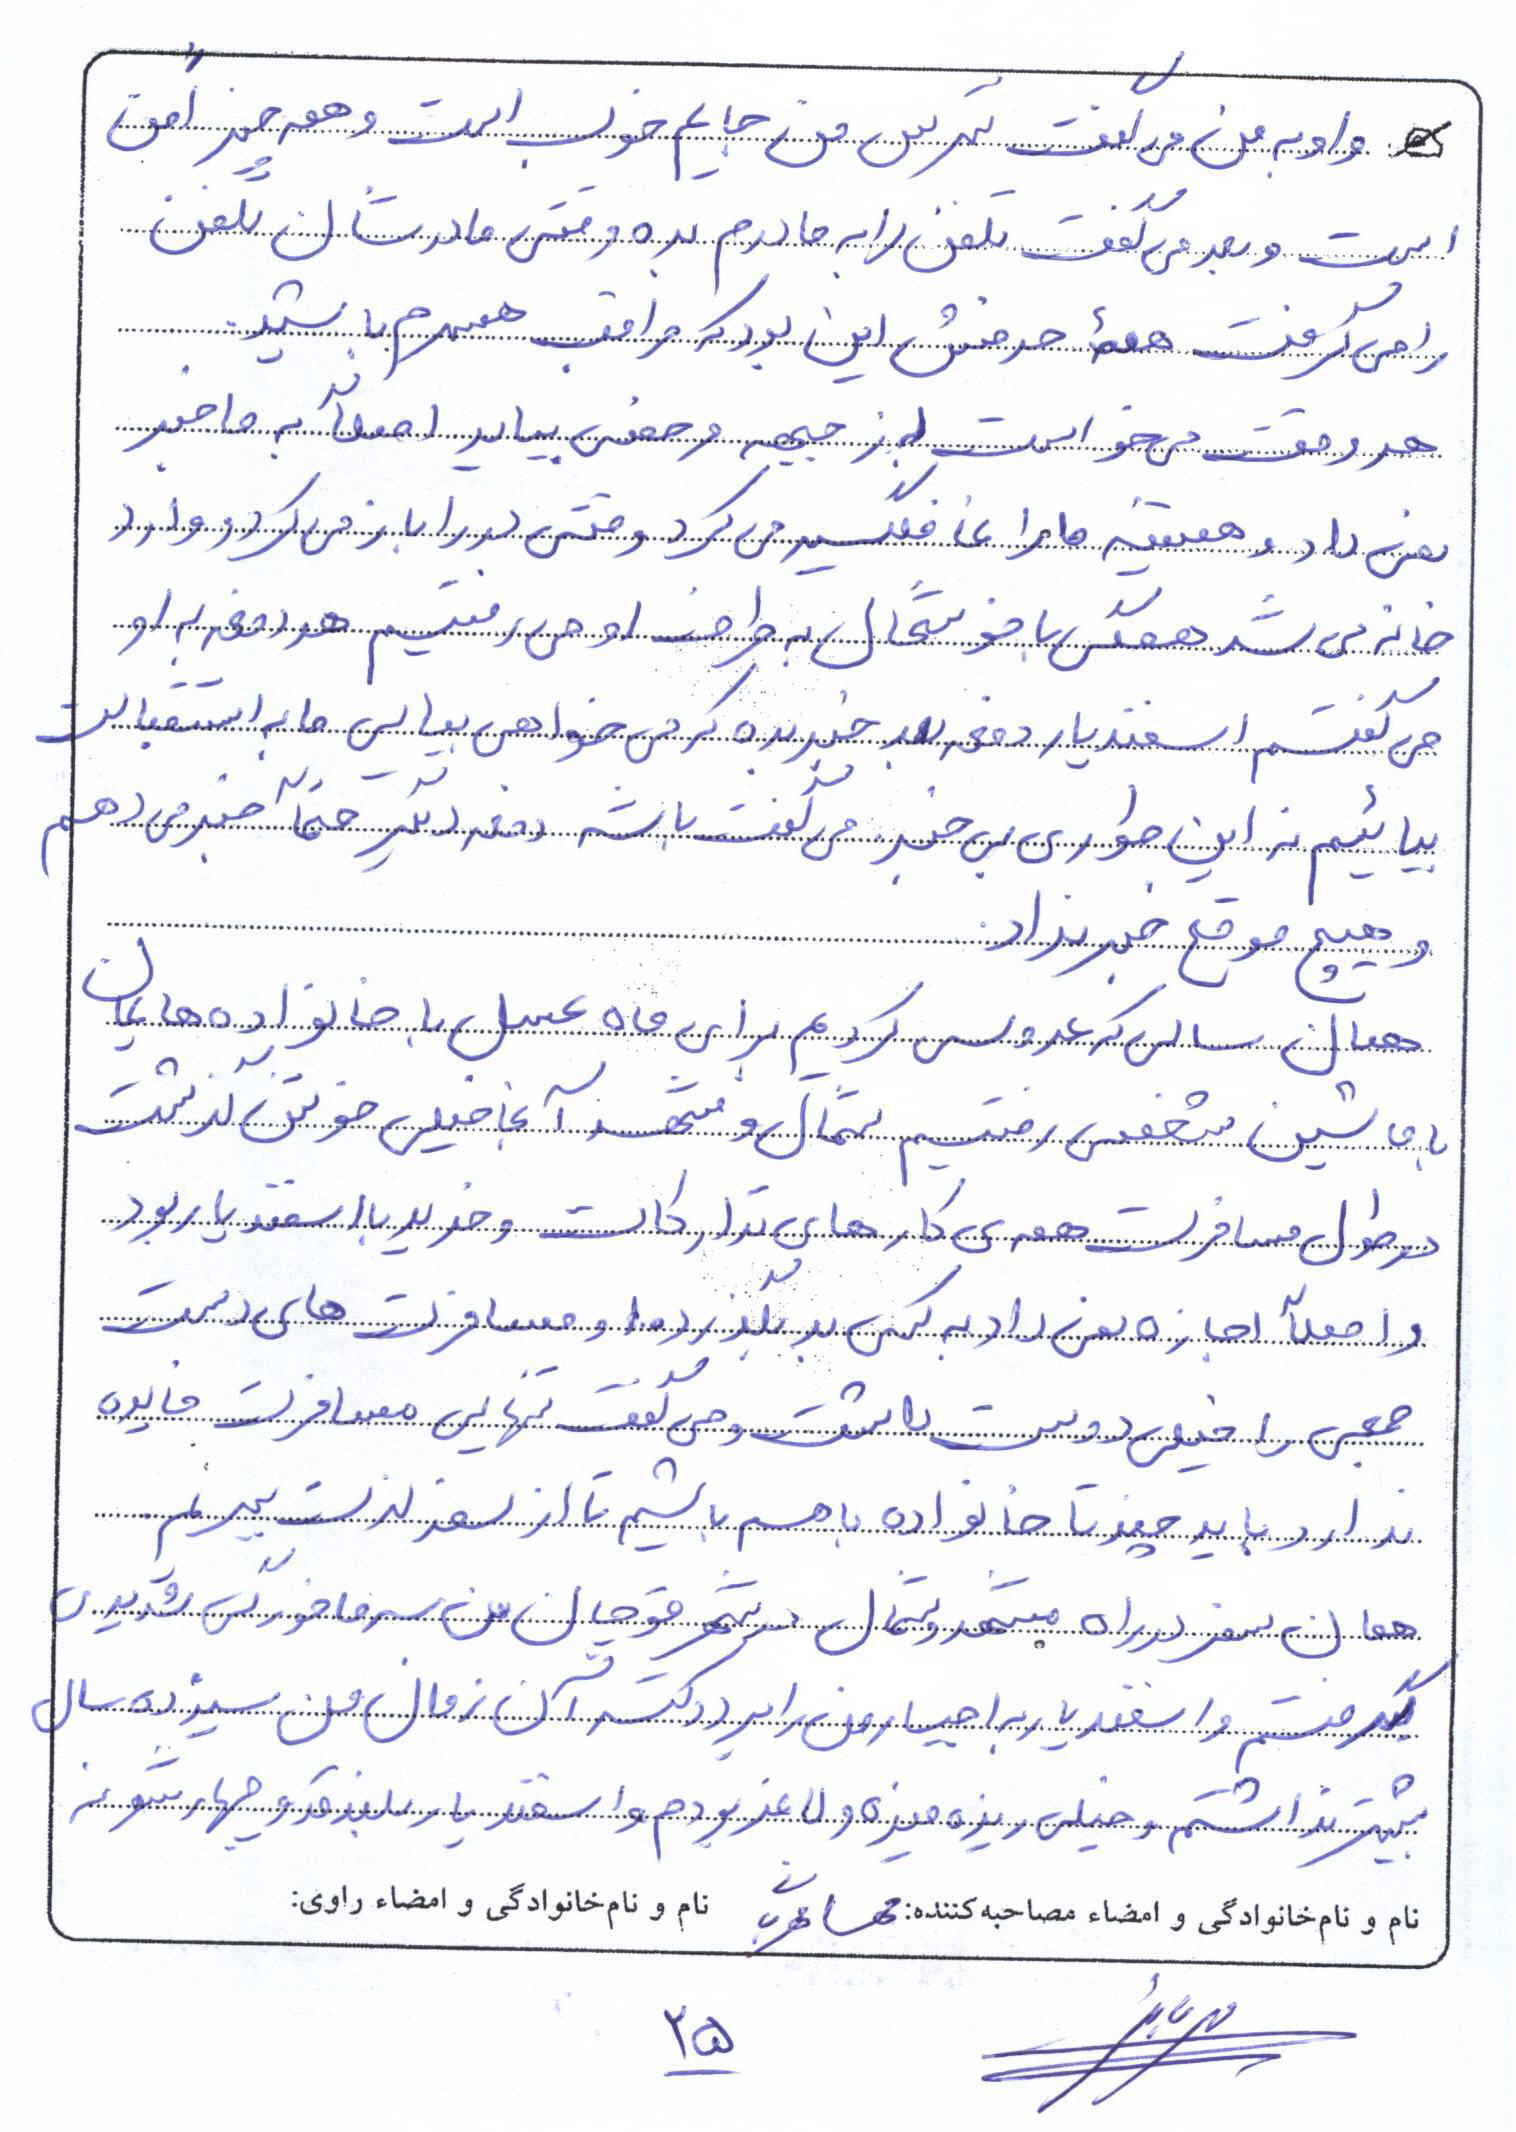 و او به من می گفت نترس من جایم خوب است و همه چیز امن
است و بعد می گفت تلفن را به مادرم بده وقتی مادرشان تلفن
را می گرفت همهٔ حرفش این بود که مراقب همسرم باشید.
هر وقت می خواست از جبهه مرخصی بیاید اصلاً به ما خبر
نمی داد و همیشه ما را غافلگیر می کرد وقتی در را باز می کرد و وارد
خانه می شد همگی با خوشحالی به طرف او می رفتیم هر دفعه به او
می گفتم اسفندیار دفعه بعد خبر بده کی می خواهی بیایی ما به استقبالت
بیائیم نه این جوری بی خبر. می گفت باشه دفعه دیگر حتماً خبر می دهم
و هیچ موقع خبر نداد.
همان سالی که عروسی کردیم برای ماه عسل با خانواده هایمان
با ماشین شخصی رفتیم شمال و مشهد آنجا خیلی خوش گذشت
در طول مسافرت همه ی کارهای تدارکات و خرید با اسفندیار بود
و اصلاً اجازه نمی داد به کسی بد بگذرد و مسافرت های دست
جمعی را خیلی دوست داشت و می گفت تنهایی مسافرت فایده
ندارد باید چند تا خانواده با هم باشیم تا از سفر لذت ببریم.
همان سفر در راه مشهد و شمال در شهر قوچان من سرماخوردگی شدیدی
گرفتم و اسفندیار به اجبار من را برد دکتر آن زمان من سیزده سال
بیشتر نداشتم و خیلی ریزه میزه و لاغر بودم و اسفندیار بلند قد و چهار شونه
نام و نام‌خانوادگی و امضاء مصاحبه‌کننده: نام و نام‌خانوادگی و امضاء راوی:
۲۵